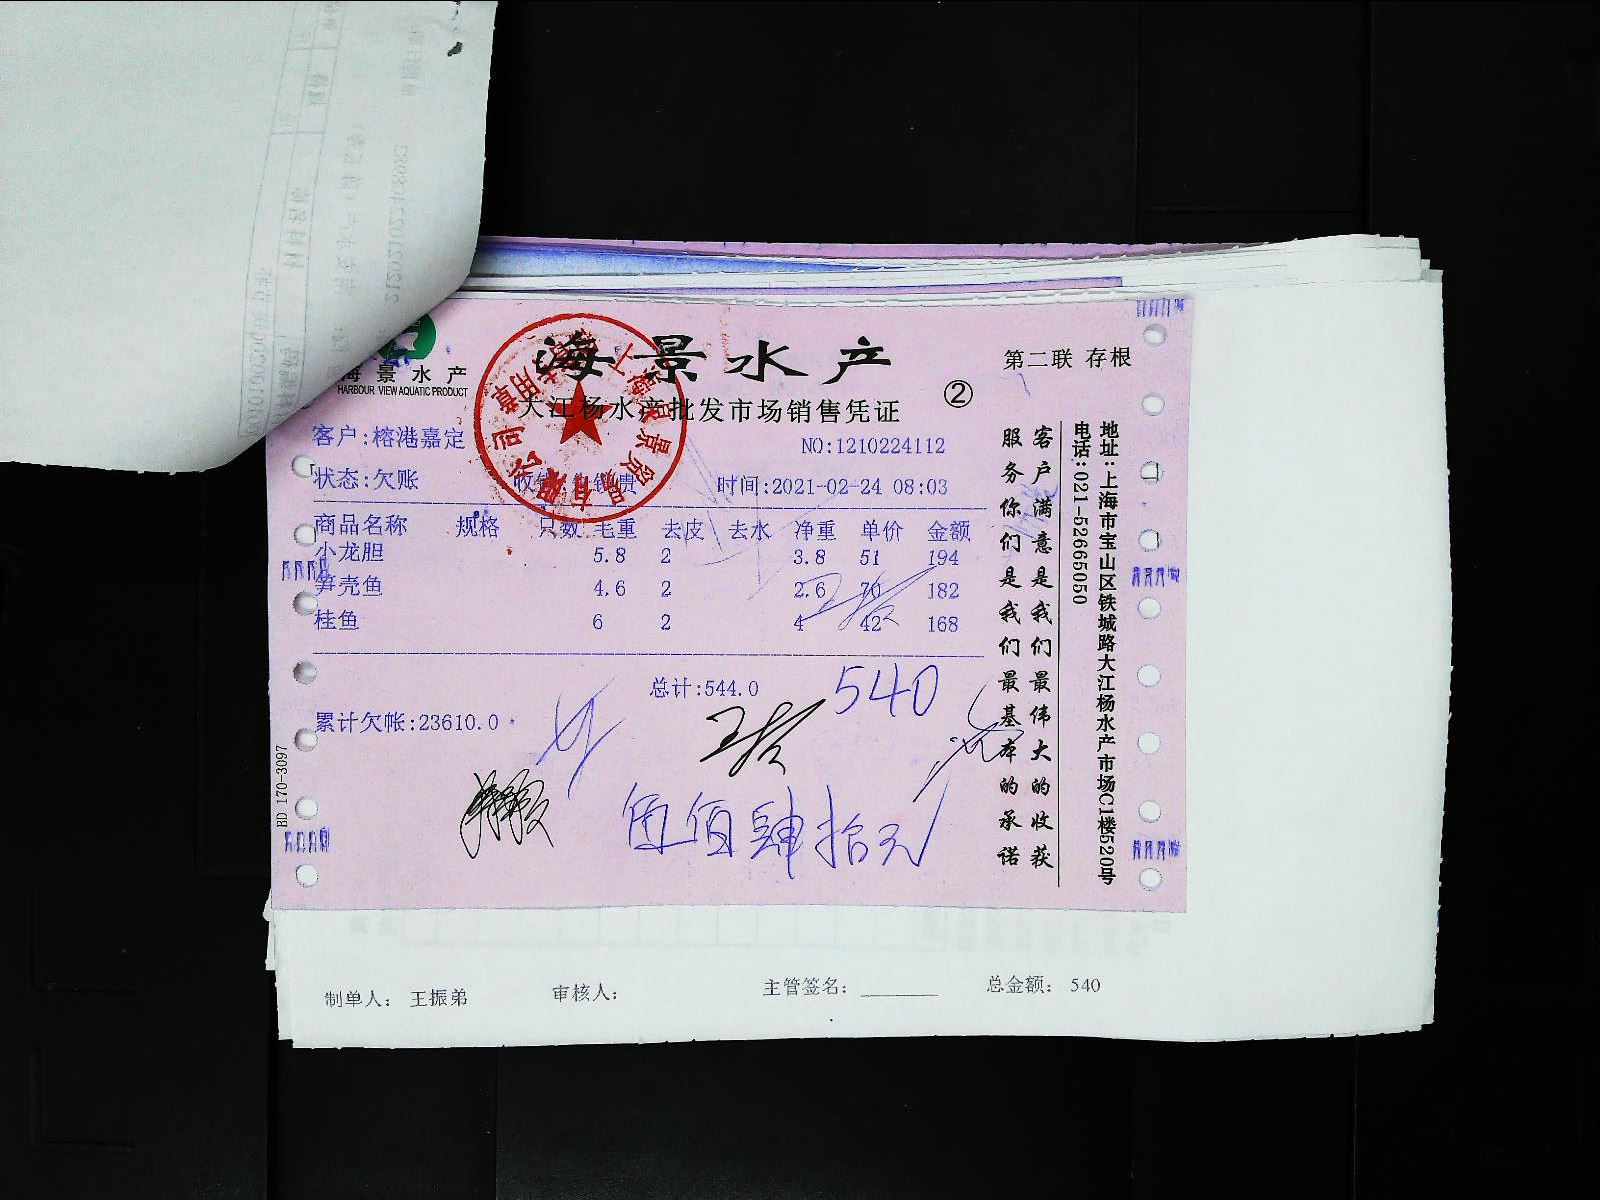 海景水产
HARBOUR VIEW AQUATIC PRODUCT
海景水产
第二联 存根
大江杨水产批发市场销售凭证
②
客户:榕港嘉定
NO:1210224112
状态:欠账
时间:2021-02-24 08:03
商品名称 规格 只数 毛重 去皮 去水 净重 单价 金额
小龙胆 5.8 2 3.8 51 194
笋壳鱼 4.6 2 2.6 70 182
桂鱼 6 2 4 42 168
总计:544.0
540
累计欠帐:23610.0
伍佰肆拾元
客户满意是我们最伟大的收获
服务你们是我们最基本的承诺
地址:上海市宝山区铁城路大江杨水产市场C1楼520号
电话:021-52665050
BD 170-3097
制单人: 王振弟
审核人:
主管签名:
总金额: 540